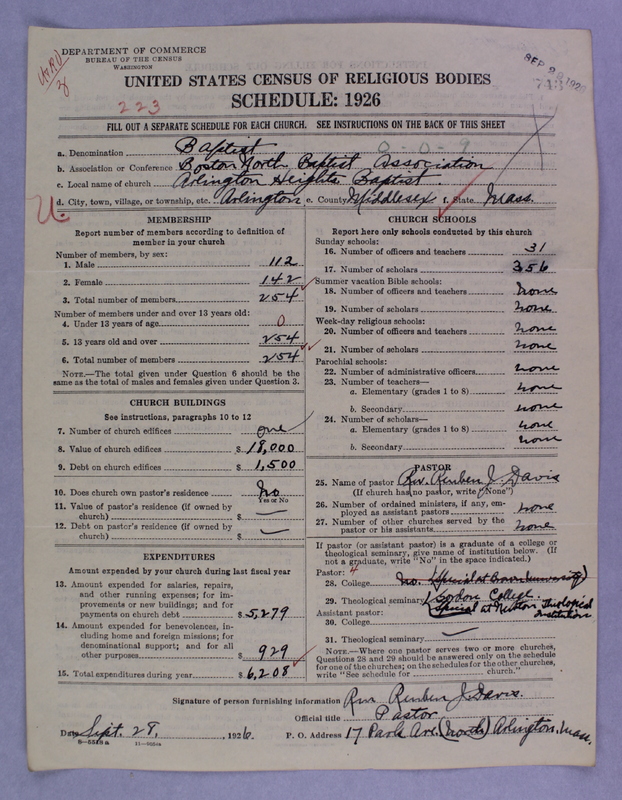 DEPARTMENT OF COMMERCE
BUREAU OF THE CENSUS
WASHINGTON
UNITED STATES CENSUS OF RELIGIOUS BODIES
SCHEDULE: 1926
223
743
FILL OUT A SEPARATE SCHEDULE FOR EACH CHURCH. SEE INSTRUCTIONS ON THE BACK OF THIS SHEET
8-0-9
a. Denomination Baptist
b. Association or Conference Boston North Baptist Association
c. Local name of church Arlington Heights Baptist.
d. City, town, village, or township, etc. Arlington, e. County Middlesex f. State Mass.
MEMBERSHIP
Report number of members according to definition of
member in your church
Number of members, by sex:
1. Male 112
2. Female 142
3. Total number of members. 254
Number of members under and over 13 years old:
4. Under 13 years of age 0
5. 13 years old and over 254
6. Total number of members 254
NOTE.—The total given under Question 6 should be the
same as the total of males and females given under Question 3.
CHURCH BUILDINGS
See instructions, paragraphs 10 to 12
7. Number of church edifices one
8. Value of church edifices $ 18,000
9. Debt on church edifices $ 1,500
10. Does church own pastor's residence No
Yes or No
11. Value of pastor's residence (if owned by
church) $ —
12. Debt on pastor's residence (if owned by
church) $ —
EXPENDITURES
Amount expended by your church during last fiscal year
13. Amount expended for salaries, repairs,
and other running expenses; for im-
provements or new buildings; and for
payments on church debt $ 5,279
14. Amount expended for benevolences, in-
cluding home and foreign missions; for
denominational support; and for all
other purposes $ 929
15. Total expenditures during year $ 6,208
CHURCH SCHOOLS
Report here only schools conducted by this church
Sunday schools:
16. Number of officers and teachers 31
17. Number of scholars 356
Summer vacation Bible schools:
18. Number of officers and teachers none
19. Number of scholars none
Week-day religious schools:
20. Number of officers and teachers none
21. Number of scholars none
Parochial schools:
22. Number of administrative officers none
23. Number of teachers—
a. Elementary (grades 1 to 8) none
b. Secondary none
24. Number of scholars—
a. Elementary (grades 1 to 8) none
b. Secondary none
PASTOR
25. Name of pastor Rev. Reuben J. Davis
(If church has no pastor, write "None")
26. Number of ordained ministers, if any, em-
ployed as assistant pastors none
27. Number of other churches served by the
pastor or his assistants none
If pastor (or assistant pastor) is a graduate of a college or
theological seminary, give name of institution below. (If
not a graduate, write "No" in the space indicated.)
Pastor: 4
28. College No. (Special at Brown University)
29. Theological seminary Gordon College.
Special at Newton Theological
Institution
Assistant pastor:
30. College
31. Theological seminary —
NOTE.—Where one pastor serves two or more churches,
Questions 28 and 29 should be answered only on the schedule
for one of the churches; on the schedules for the other churches,
write "See schedule for church."
Signature of person furnishing information Rev. Reuben J. Davis.
Official title Pastor
Date Sept. 28, , 1926. P. O. Address 17 Park Ave. (North) Arlington, Mass.